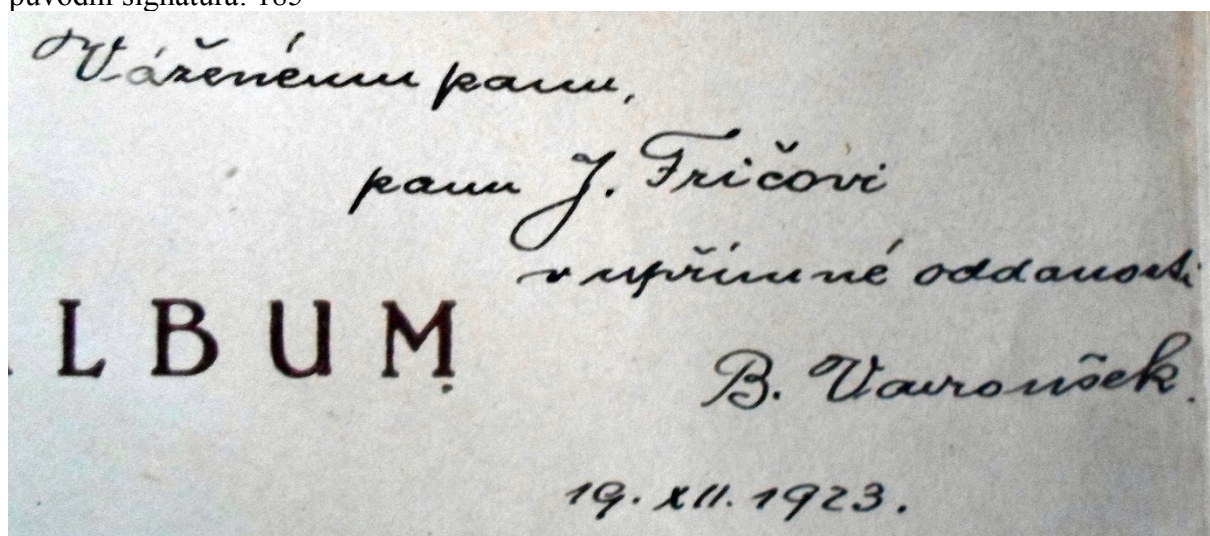 původní signatura: 185
Váženému panu,
panu J. Fričovi
v upřímné oddanosti
LBUM
B. Vavroušek.
19. XII. 1923.